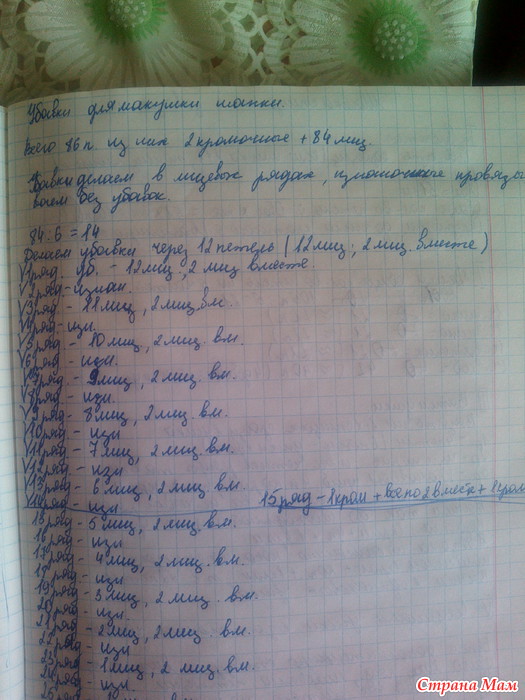 Убавки для макушки шапки.
Всего 86 п. из них 2 кромочные + 84 лиц.
Убавки делаем в лицевых рядах, изнаночные провязы
ваем без убавок.
84:6=14
Делаем убавки через 12 петель (12 лиц; 2 лиц. вместе)
1 ряд. уб. - 12 лиц; 2 лиц вместе.
2 ряд - изнан.
3 ряд - 11 лиц, 2 лиц. вм.
4 ряд - изн.
5 ряд - 10 лиц, 2 лиц. вм.
6 ряд - изн.
7 ряд - 9 лиц, 2 лиц. вм.
8 ряд - изн.
9 ряд - 8 лиц, 2 лиц. вм.
10 ряд - изн
11 ряд - 7 лиц, 2 лиц. вм.
12 ряд - изн
13 ряд - 6 лиц, 2 лиц. вм.
14 ряд - изн
15 ряд - 1 кром + все по 2 вместе + 1 кром
15 ряд - 5 лиц, 2 лиц. вм.
16 ряд - изн.
17 ряд - 4 лиц, 2 лиц. вм.
18 ряд - изн
19 ряд - 3 лиц, 2 лиц. вм.
20 ряд - изн.
21 ряд - 2 лиц, 2 лиц. вм.
22 ряд - изн
23 ряд - 1 лиц, 2 лиц. вм.
24 ряд - изн
Страна Мам